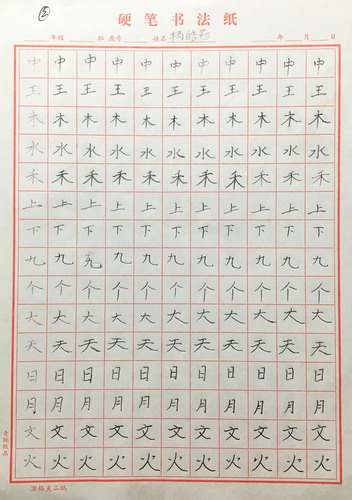 ②
硬笔书法纸
年级 班 座号 姓名 年 月 日
中 中 中 中 中 中 中 中 中 中 中
王 王 王 王 王 王 王 王 王 王 王
木 木 木 木 木 木 木 木 木 木 木
水 水 水 水 水 水 水 水 水 水 水
禾 禾 禾 禾 禾 禾 禾 禾 禾 禾 禾
上 上 上 上 上 上 上 上 上 上 上
下 下 下 下 下 下 下 下 下 下 下
九 九 九 九 九 九 九 九 九 九
个 个 个 个 个 个 个 个 个 个 个
大 大 大 大 大 大 大 大 大 大 大
天 天 天 天 天 天 天 天 天 天 天
日 日 日 日 日 日 日 日 日 日 日
月 月 月 月 月 月 月 月 月 月 月
文 文 文 文 文 文 文 文 文 文 文
火 火 火 火 火 火 火 火 火 火 火